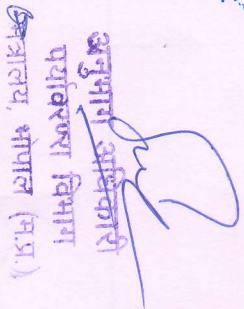 अनुभाग अधिकारी
पर्यावरण विभाग
मंत्रालय, भोपाल (म.प्र.)